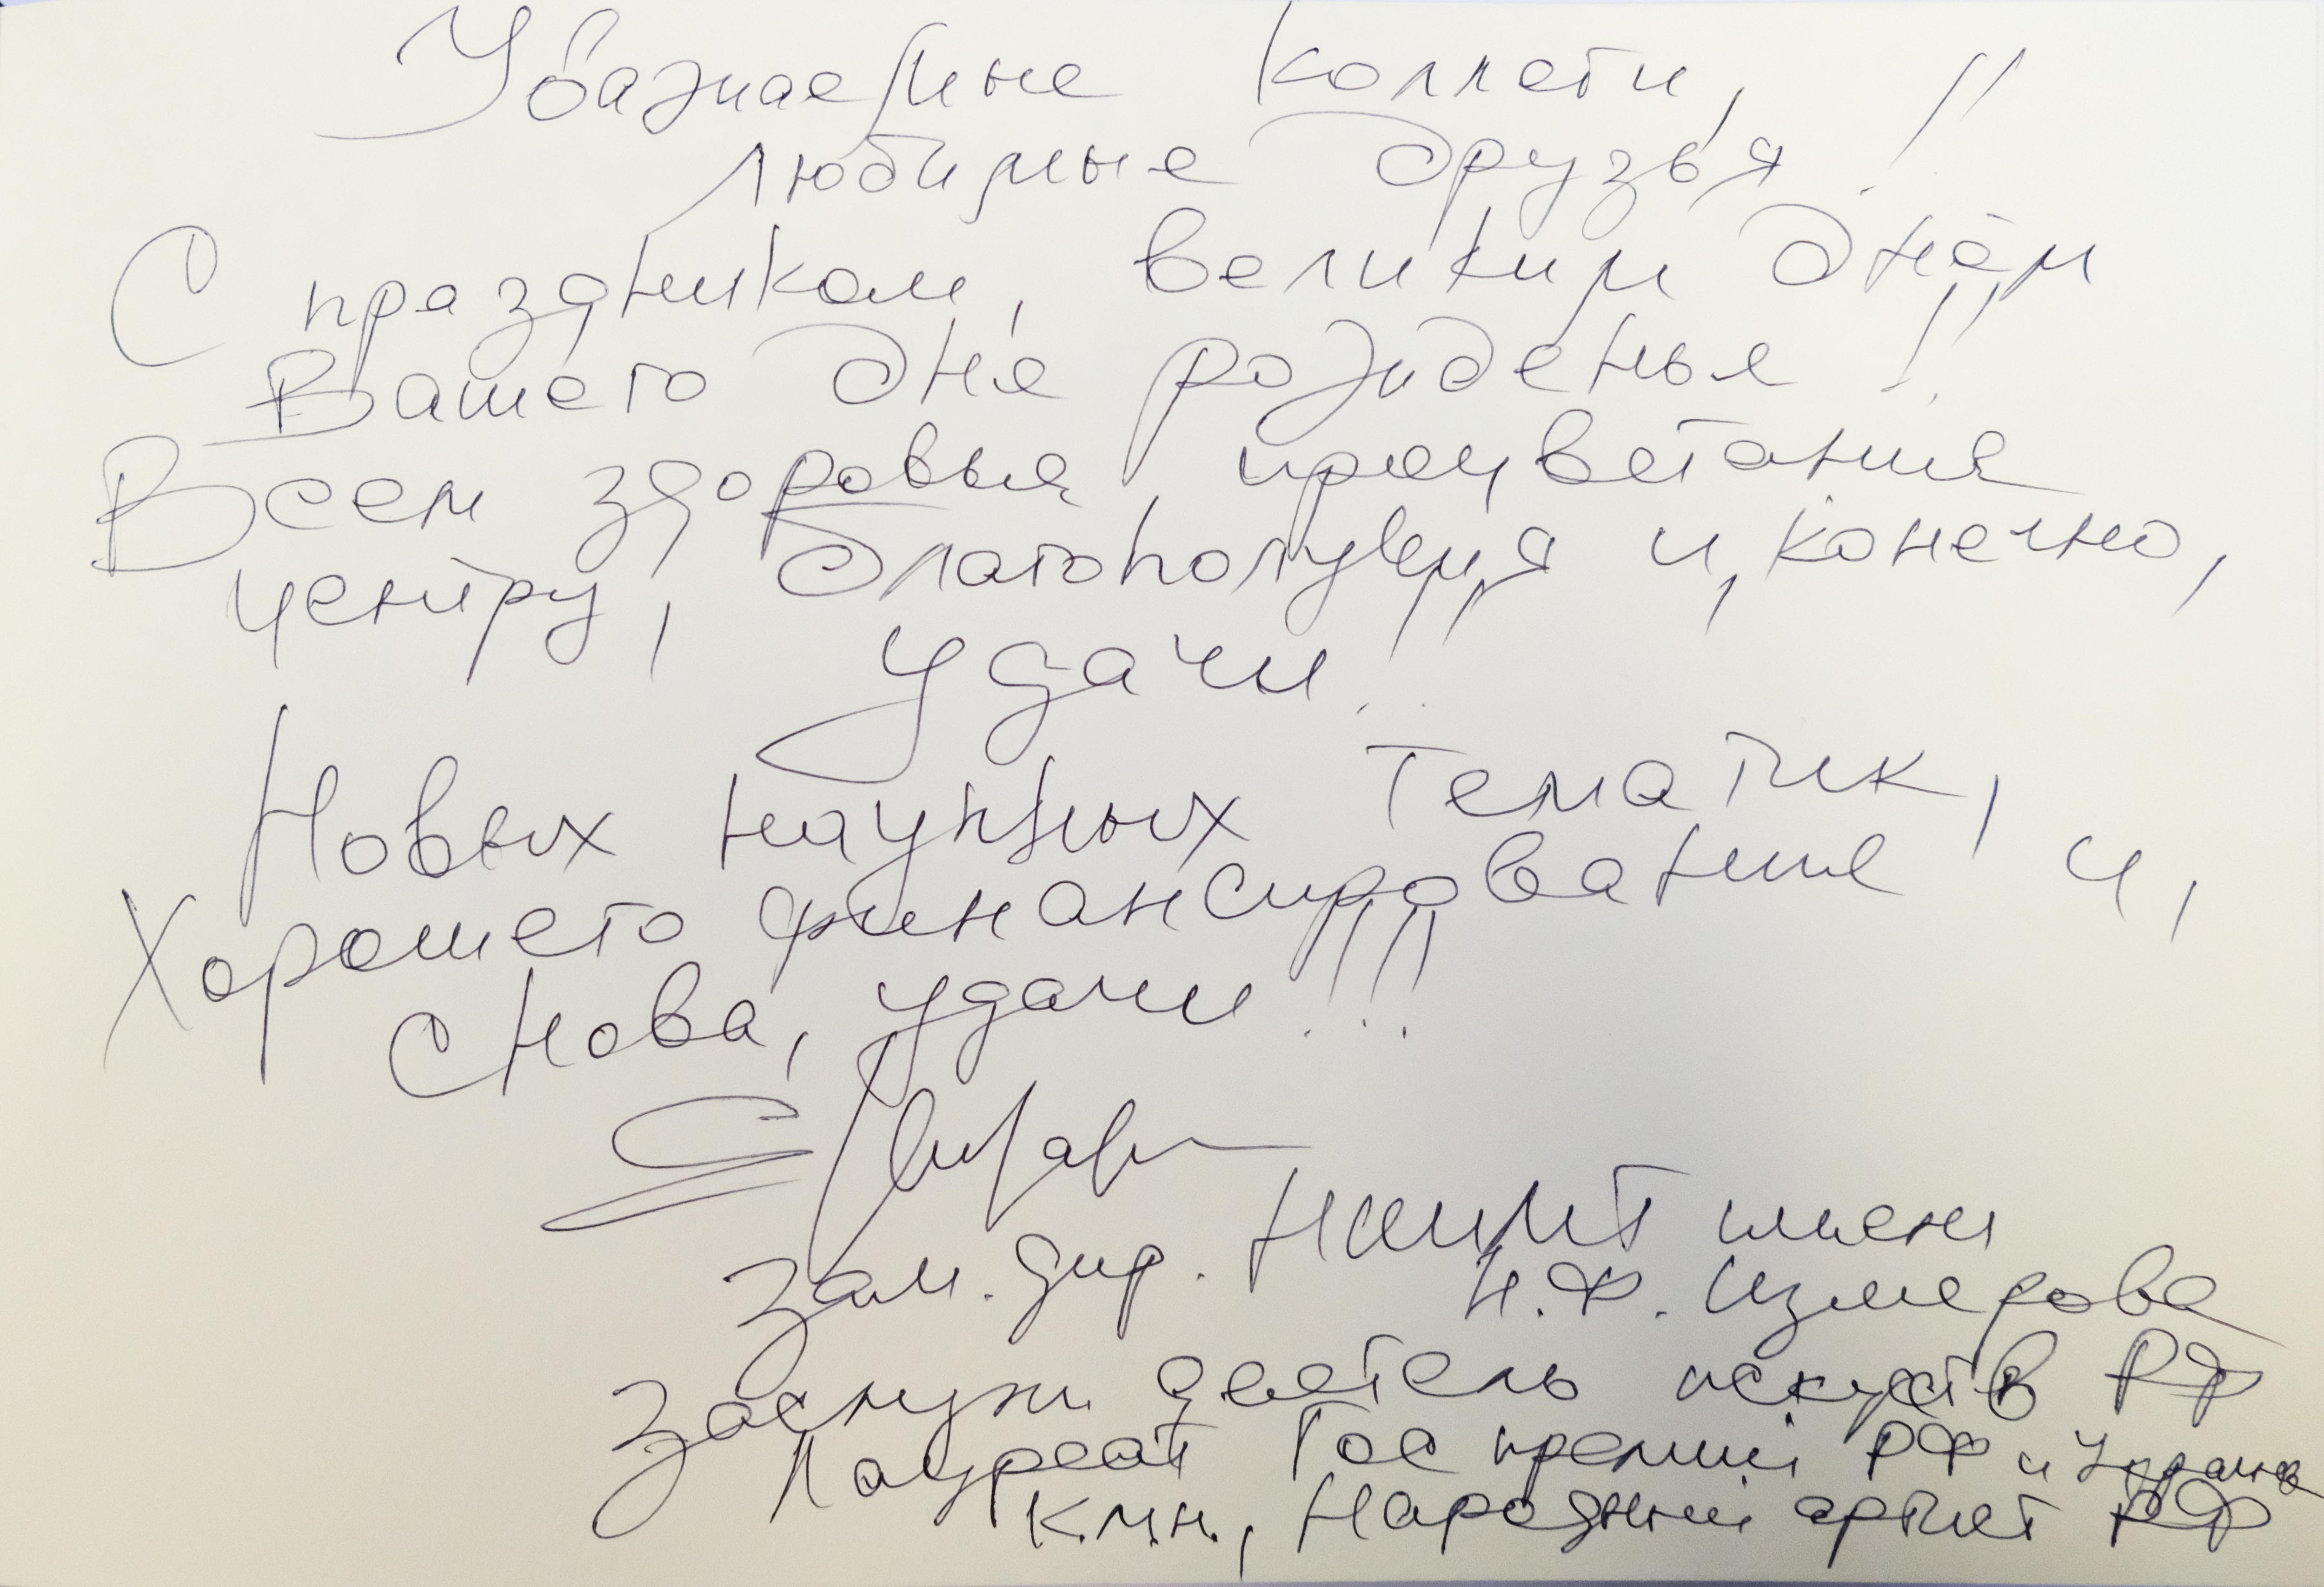 Уважаемые коллеги,
любимые друзья!!
С праздником, великим днём
Вашего дня рожденья!!
Всем здоровья, процветания
центру, благополучия и, конечно,
удачи!!
Новых научных тематик,
Хорошего финансирования и,
снова, удачи!!!
Зам. дир. НИИМТ имени
Н.Ф. Измерова
Заслуж. деятель искуств РФ
Лауреат Гос премий РФ и Украины
к.м.н., Народный артист РФ